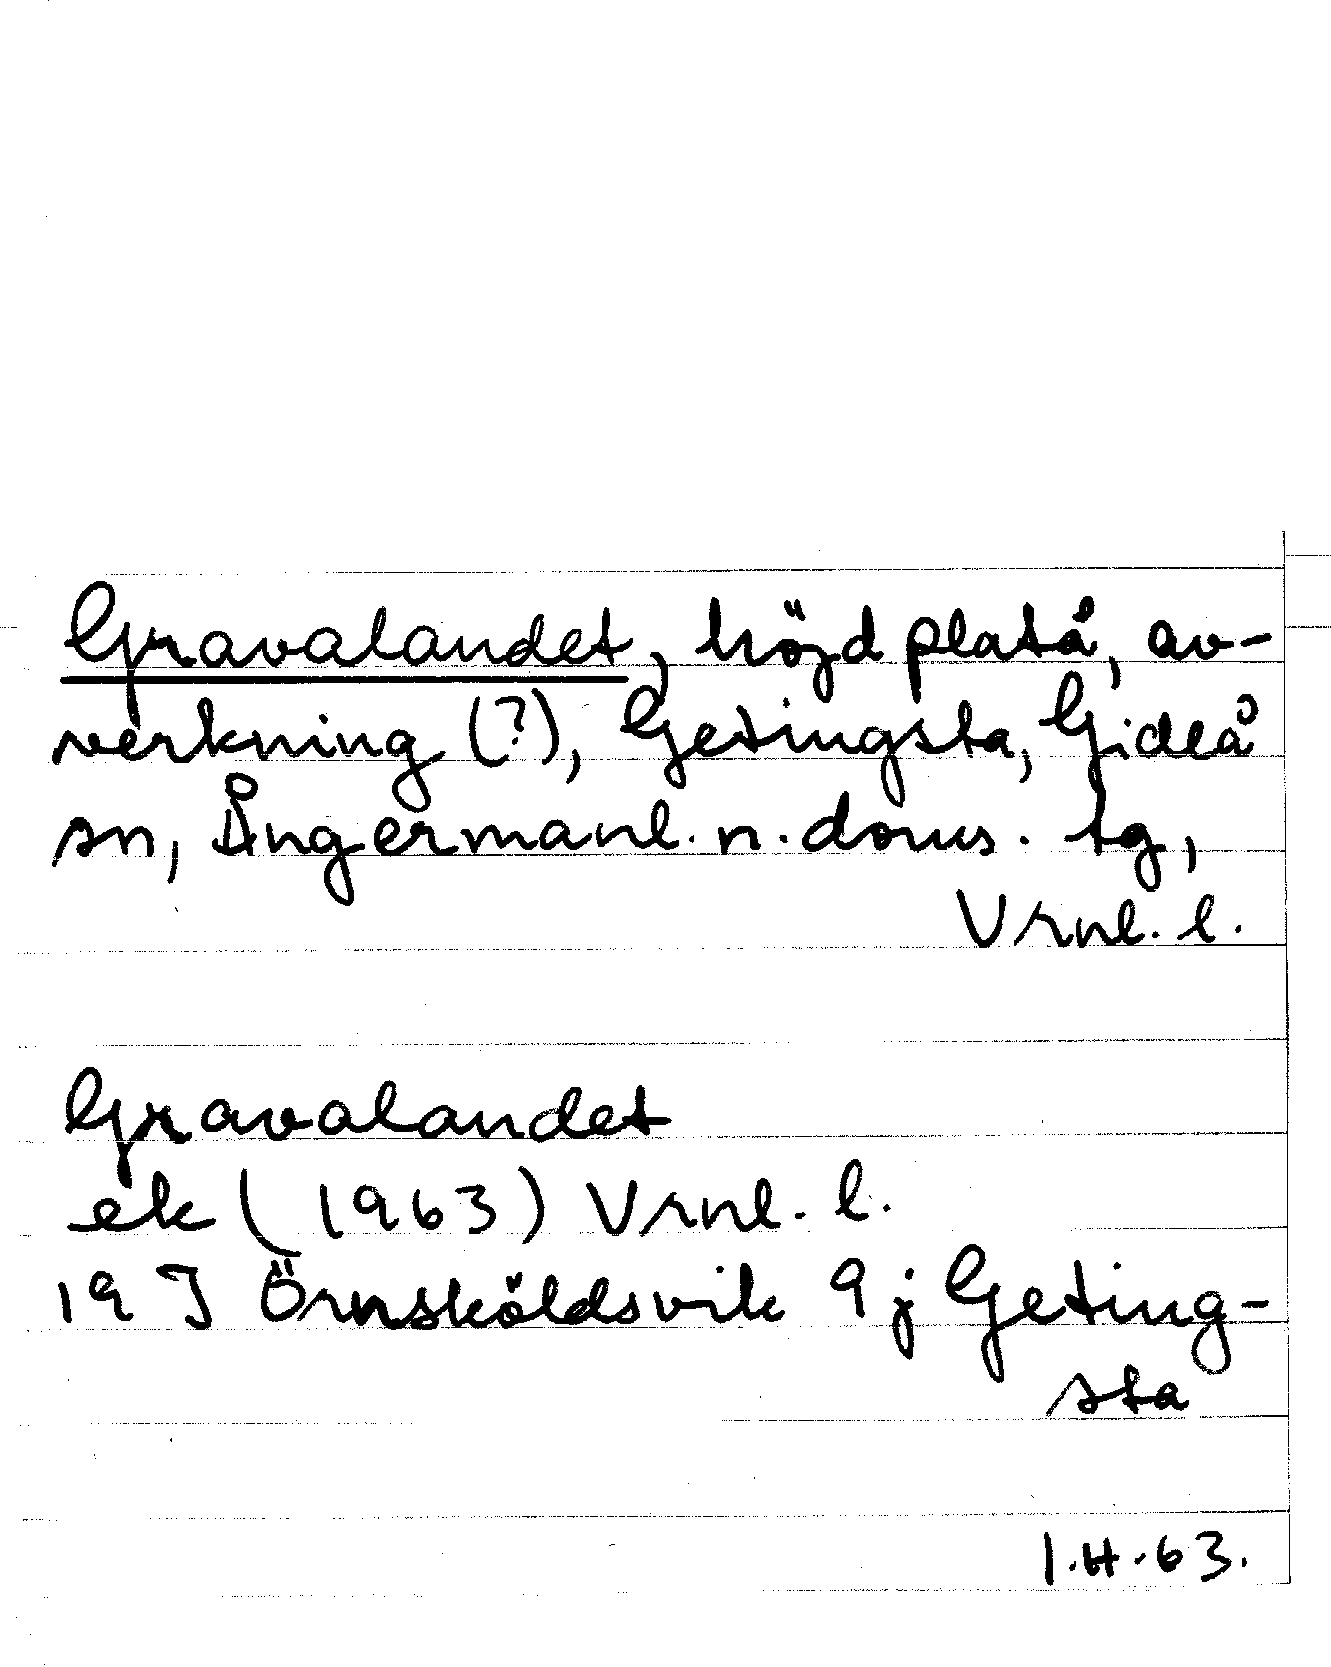 Gravalandet, höjdplatå, av-
verkning (?), Getingsta, Gideå
sn, Ångermanl. n. doms. tg,
Vrnl. l.
Gravalandet
ek (1963) Vrnl. l.
19 J Örnsköldsvik 9j Geting-
sta
I.H.63.